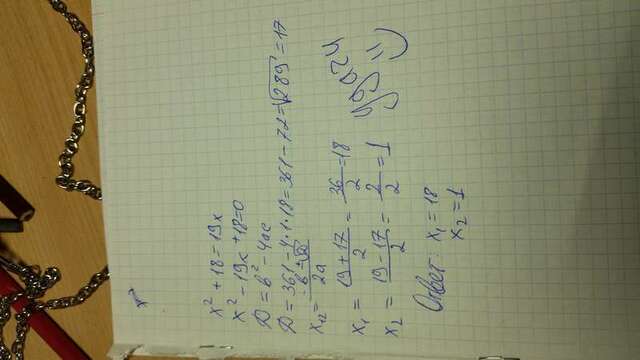 x² + 18 = 19x
x² - 19x + 18 = 0
D = b² - 4ac
D = 361 - 4·1·18 = 361 - 72 = √289 = 17
x₁,₂ = (-b ± √D) / 2a
x₁ = (19 + 17) / 2 = 36 / 2 = 18
x₂ = (19 - 17) / 2 = 2 / 2 = 1
Удачи
Ответ: x₁ = 18
x₂ = 1